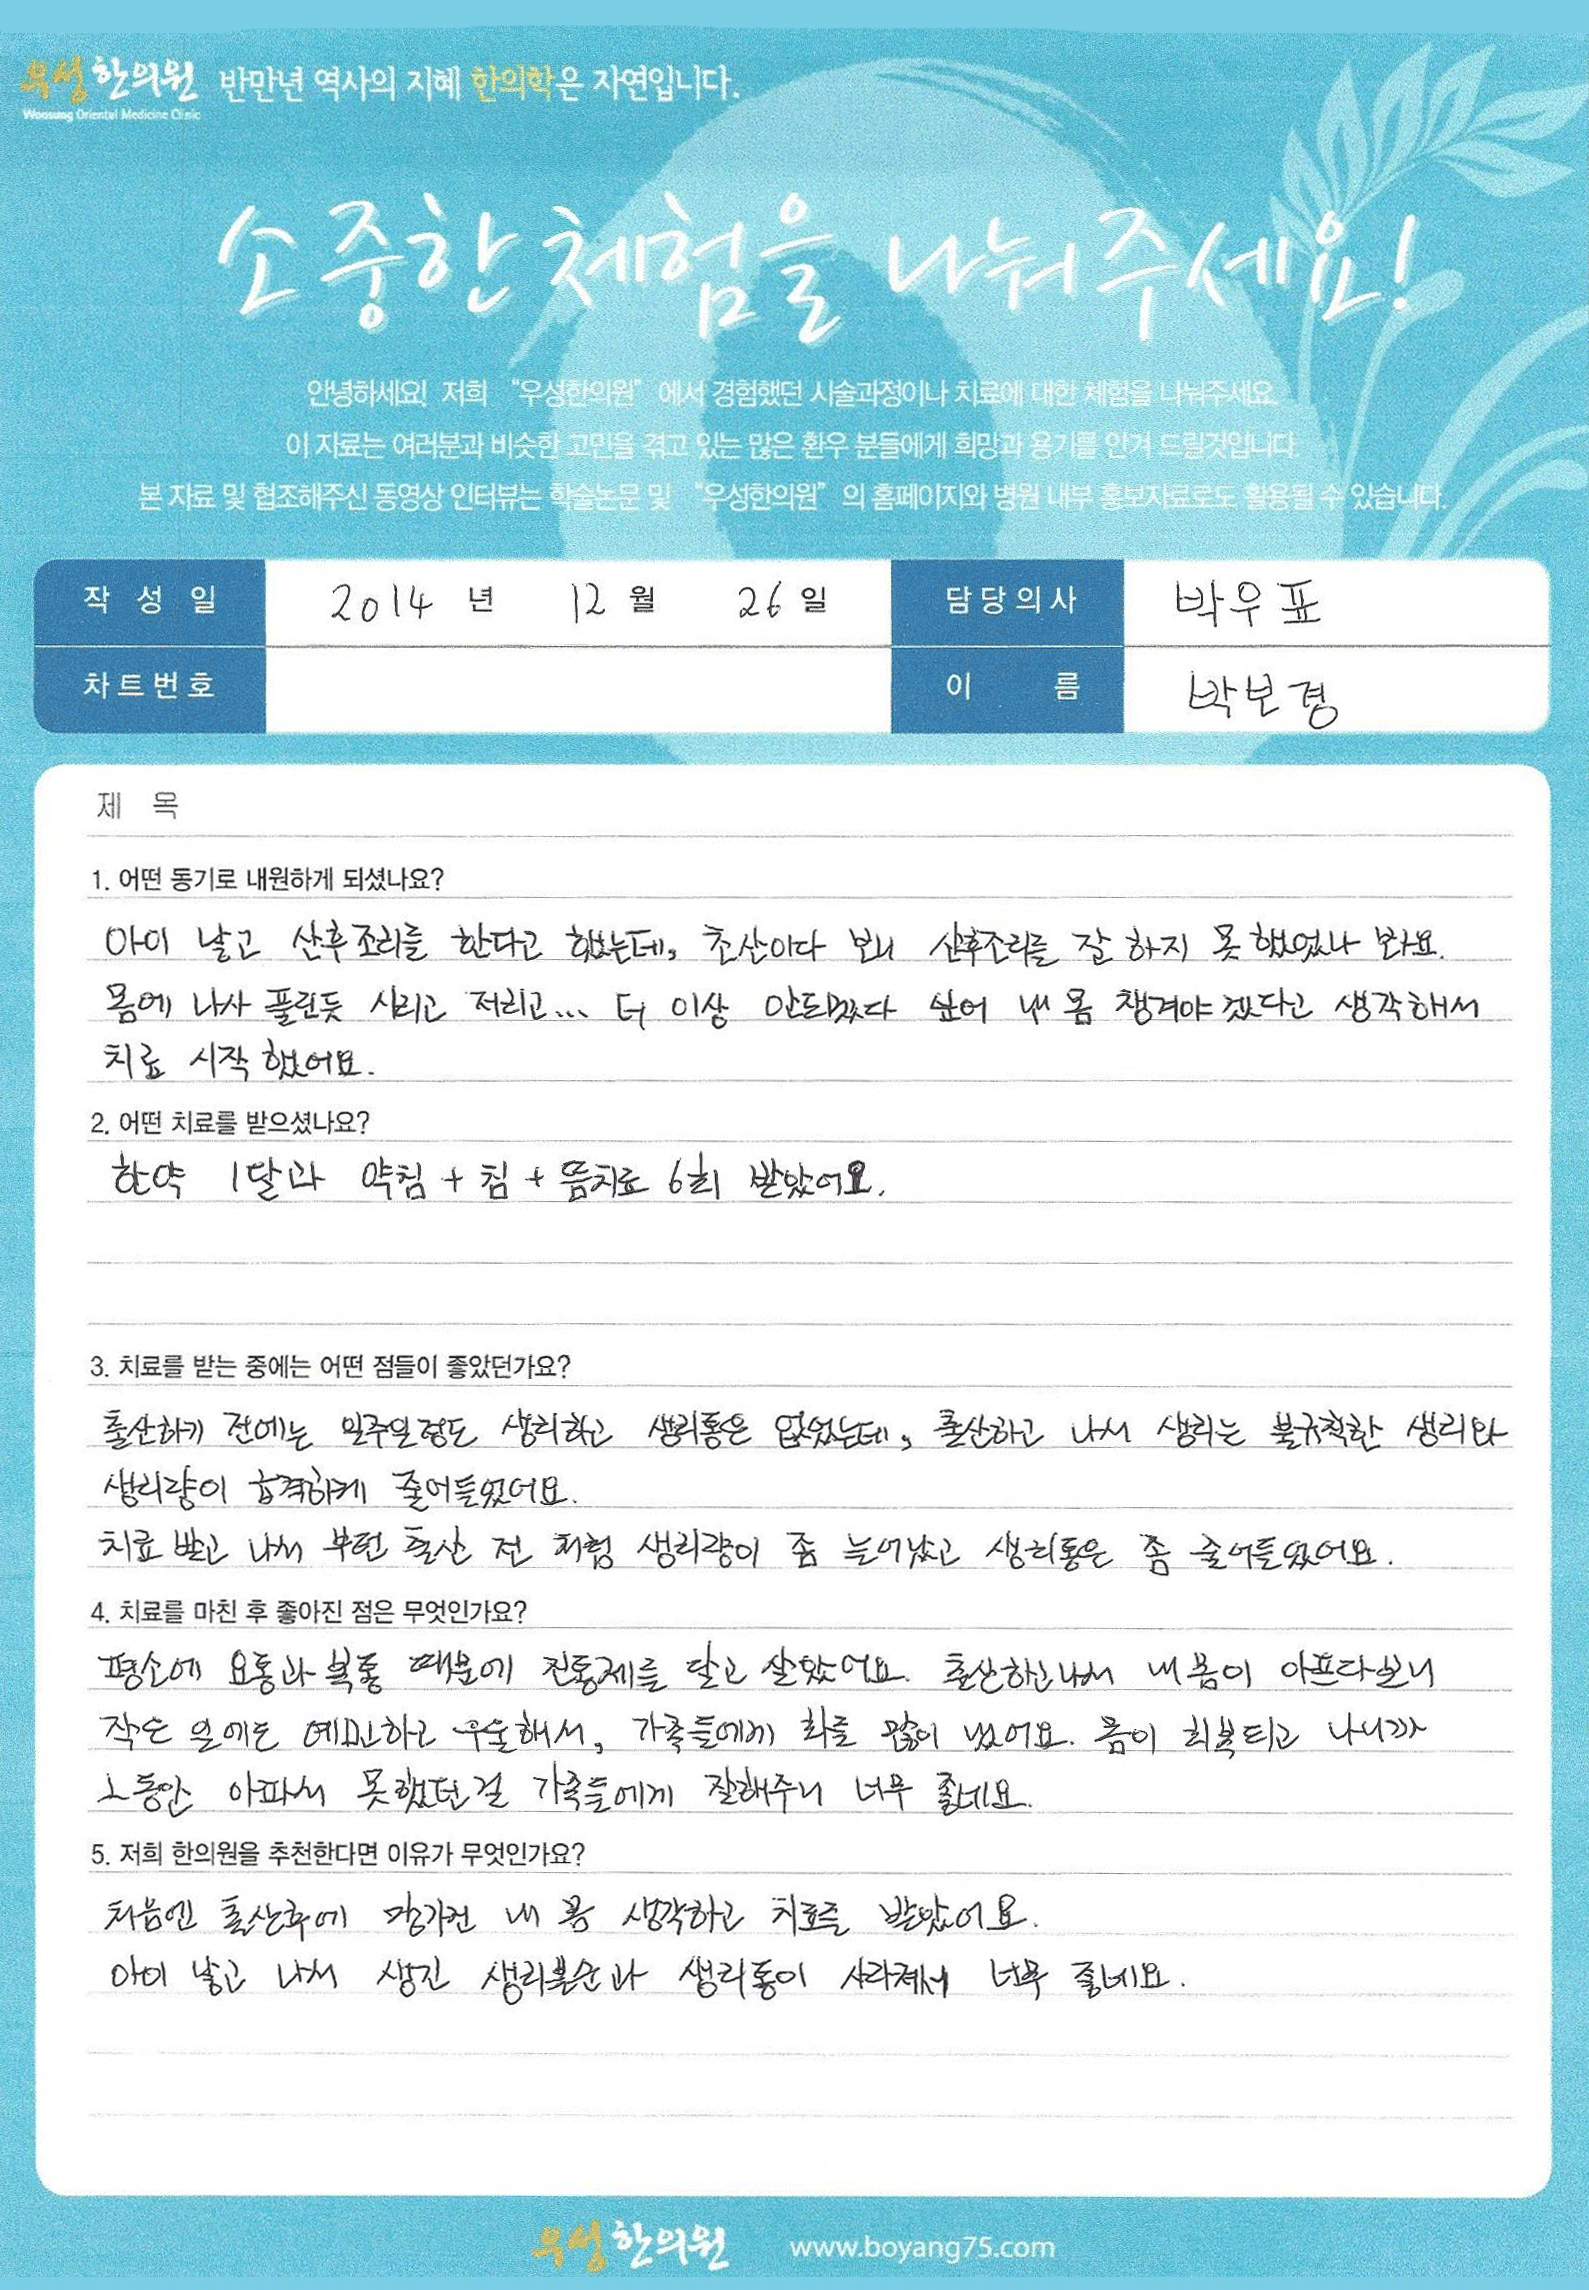 우성한의원 반만년 역사의 지혜 한의학은 자연입니다.
Woosung Oriental Medicine Clinic
소중한 체험을 나눠주세요!
안녕하세요! 저희 “우성한의원” 에서 경험했던 시술과정이나 치료에 대한 체험을 나눠주세요.
이 자료는 여러분과 비슷한 고민을 겪고 있는 많은 환우 분들에게 희망과 용기를 안겨 드릴것입니다.
본 자료 및 협조해주신 동영상 인터뷰는 학술논문 및 “우성한의원” 의 홈페이지와 병원 내부 홍보자료로도 활용될 수 있습니다.
작성일 2014 년 12 월 26 일 담당의사 박우표
차트번호 이름 박보경
제 목
1. 어떤 동기로 내원하게 되셨나요?
아이 낳고 산후조리를 한다고 했는데, 초산이다 보니 산후조리를 잘 하지 못했었나 봐요.
몸에 나사 풀린듯 시리고 저리고... 더 이상 안되겠다 싶어 내 몸 챙겨야겠다고 생각해서
치료 시작했어요.
2. 어떤 치료를 받으셨나요?
한약 1달과 약침 + 침 + 뜸치료 6회 받았어요.
3. 치료를 받는 중에는 어떤 점들이 좋았던가요?
출산하기 전에는 일주일정도 생리하고 생리통은 없었는데, 출산하고 나서 생리는 불규칙한 생리와
생리량이 급격하게 줄어들었어요.
치료 받고 나서 부턴 출산 전 처럼 생리량이 좀 늘어났고 생리통은 좀 줄어들었어요.
4. 치료를 마친 후 좋아진 점은 무엇인가요?
평소에 요통과 복통 때문에 진통제를 달고 살았어요. 출산하고나서 내 몸이 아프다보니
작은 일에도 예민하고 우울해서, 가족들에게 화를 많이 냈어요. 몸이 회복되고 나니까
그동안 아파서 못했던걸 가족들에게 잘해주니 너무 좋네요.
5. 저희 한의원을 추천한다면 이유가 무엇인가요?
처음엔 출산후에 망가진 내 몸 생각하고 치료를 받았어요.
아이 낳고 나서 생긴 생리불순과 생리통이 사라져서 너무 좋네요.
우성한의원 www.boyang75.com